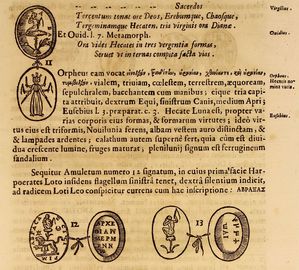 Sacerdos
Tercentum tonat ore Deos, Erebumque, Chaosque,
Tergeminamque Hecaten, tria virginis ora Dianæ.
Et Ovid. l. 7. Metamorph.
Ora vides Hecates in tres vergentia formas,
Servet ut in ternas compita secta vias.
Virgilius.
Ovidius.
11
Orpheus eam vocat
vialem, triviam, cœlestem, terrestrem, æquoream,
sepulchralem, bacchantem cum manibus; eique tria capita
attribuit, dextrum Equi, sinistrum Canis, medium Apri
Eusebius l. 3. præparat. c. 3. Hecate Luna est, propter varias
corporis eius formas, & formarum virtutes; ideò virtus
eius est triformis, Novilunia ferens, albam vestem auro distinctam, &
& lampades ardentes; calathum autem supernè fert, quia cùm est dia
dua crescente lumine, fruges maturat; plenilunij signum est ferrugineum
sandalium.
Orpheus
Hecates nomina
varia.
Eusebius.
Sequitur Amuletum numero 12 signatum, in cuius prima facie Harpocrates
Loto insidens flagellum sinistrâ tenet, dextrâ silentium indicit,
ad radicem Loti Leo conspicitur currens cum hac inscriptione: ΑΒΡΑΝΑΣ
12
13